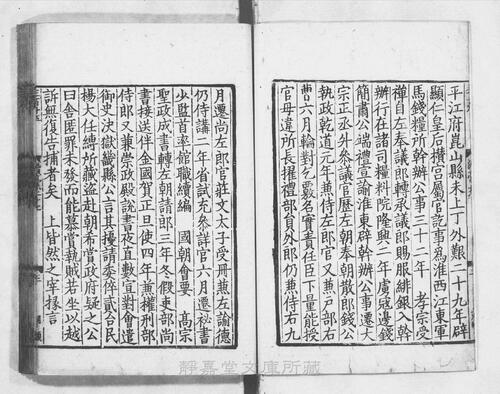 平江府崑山縣未上丁外艱二十九年辟
顯仁皇后攢宮屬官訖事爲淮西江東軍
馬錢糧所幹辦公事三十二年　孝宗受
禪自左奉議郎轉承議郎賜服緋銀入幹
辦行在諸司糧料院隆興二年虜寇邊錢
簡肅公端禮宣諭淮東辟幹辦公事遷大
宗正丞外參議官歷左朝奉朝散郎錢公
執政乾道元年兼侍左郎官又兼戶部右
曹六月輪對乞覈名實責任臣下量能授
官毋違所長擢禮部員外郎仍兼侍右九
月遷尚左郎官莊文太子受冊兼左諭德
仍侍講二年省試充參詳官六月遷祕書
少監首率館職續編　國朝會要　高宗
聖政成書轉左朝請郎三年冬假吏部尚
書接送伴金國賀正旦使四年兼權刑部
侍郎又兼崇政殿說書夜直數宣對會遣
御史決獄畿縣公言其擾請委倅貳召民
楊大任縛所藏盜赴朝希賞政府疑之公
曰舍匿罪未發而能慕賞執賊若坐以越
訴無復告捕者矣　上皆然之宰掾言
靜嘉堂文庫所藏